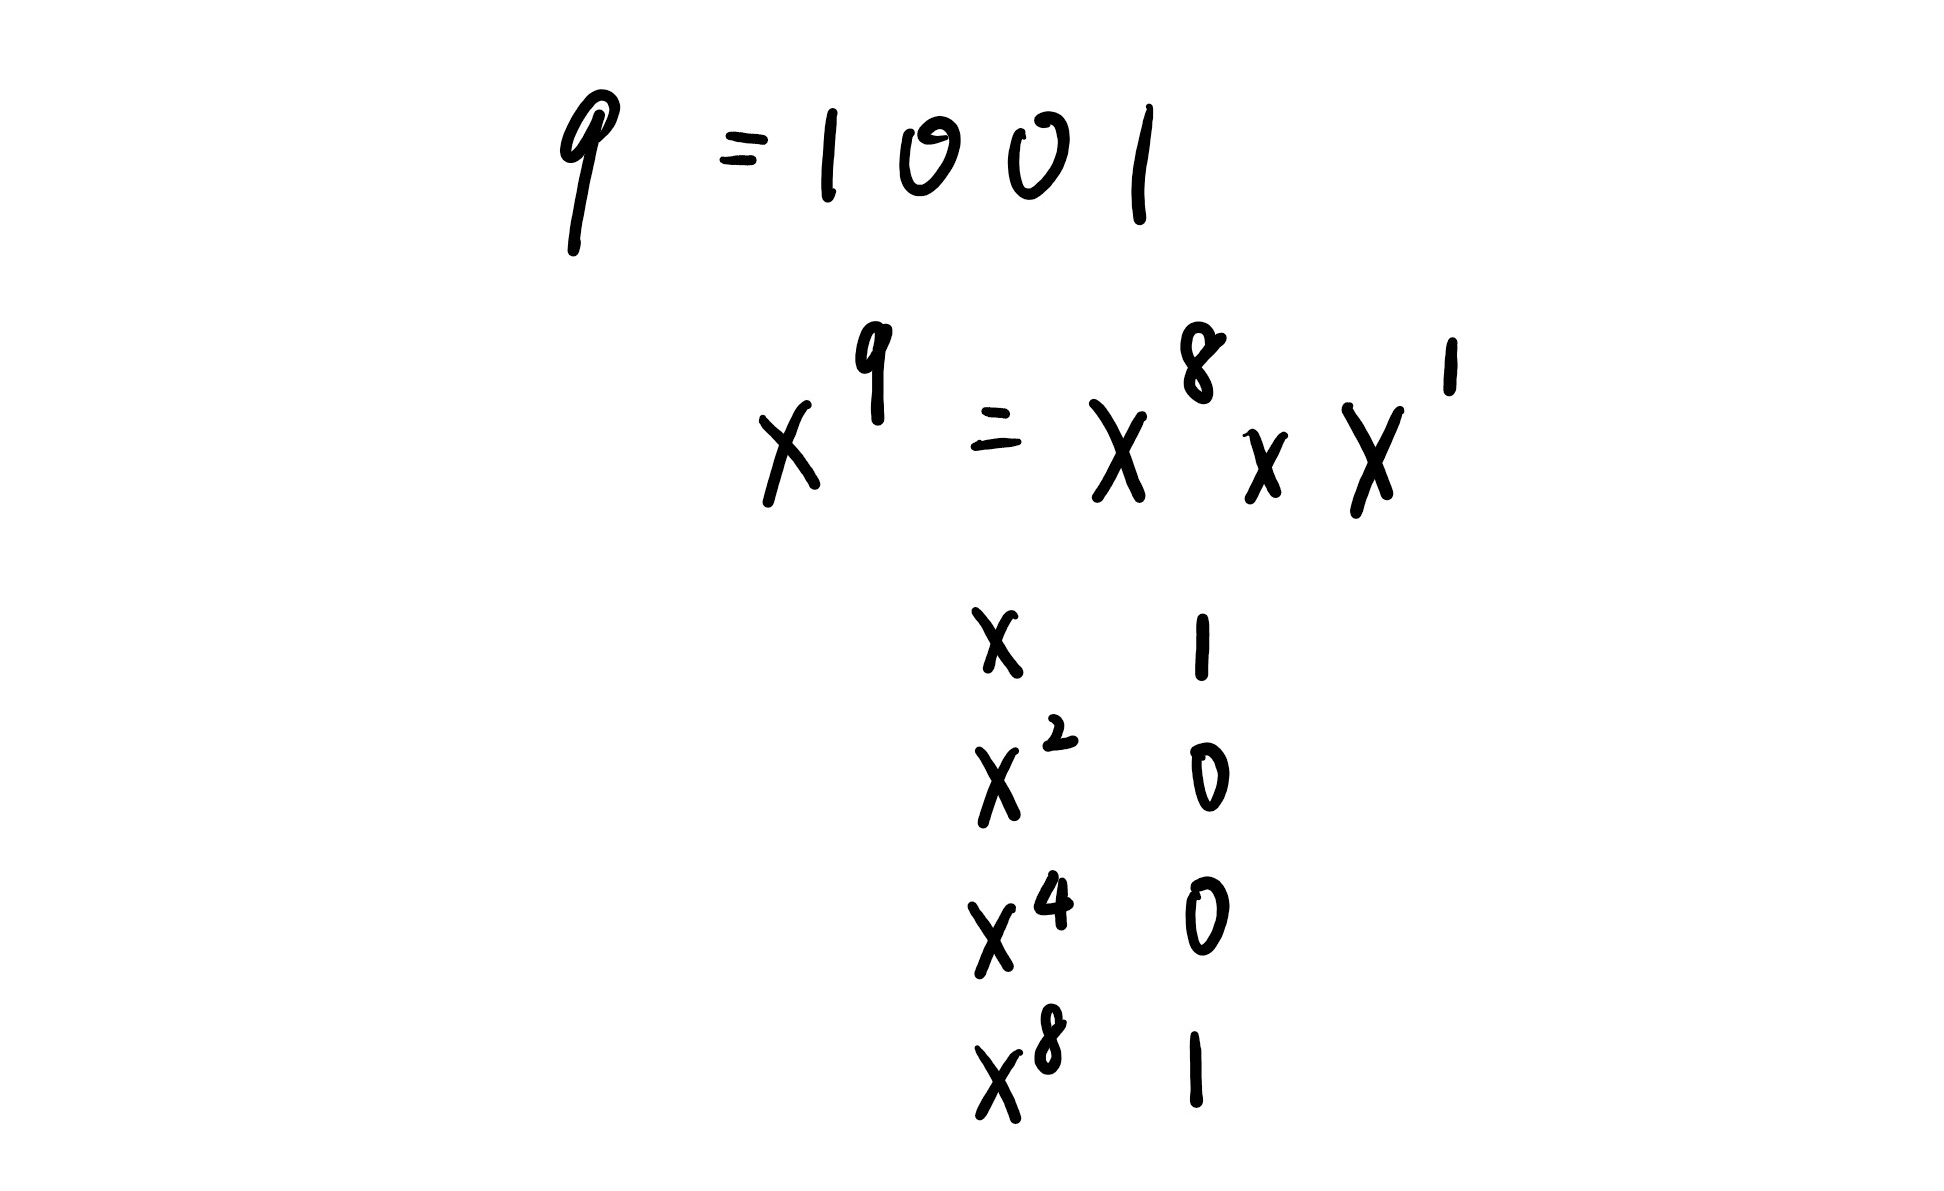 9 = 1 0 0 1
x⁹ = x⁸ x x¹
x 1
x² 0
x⁴ 0
x⁸ 1